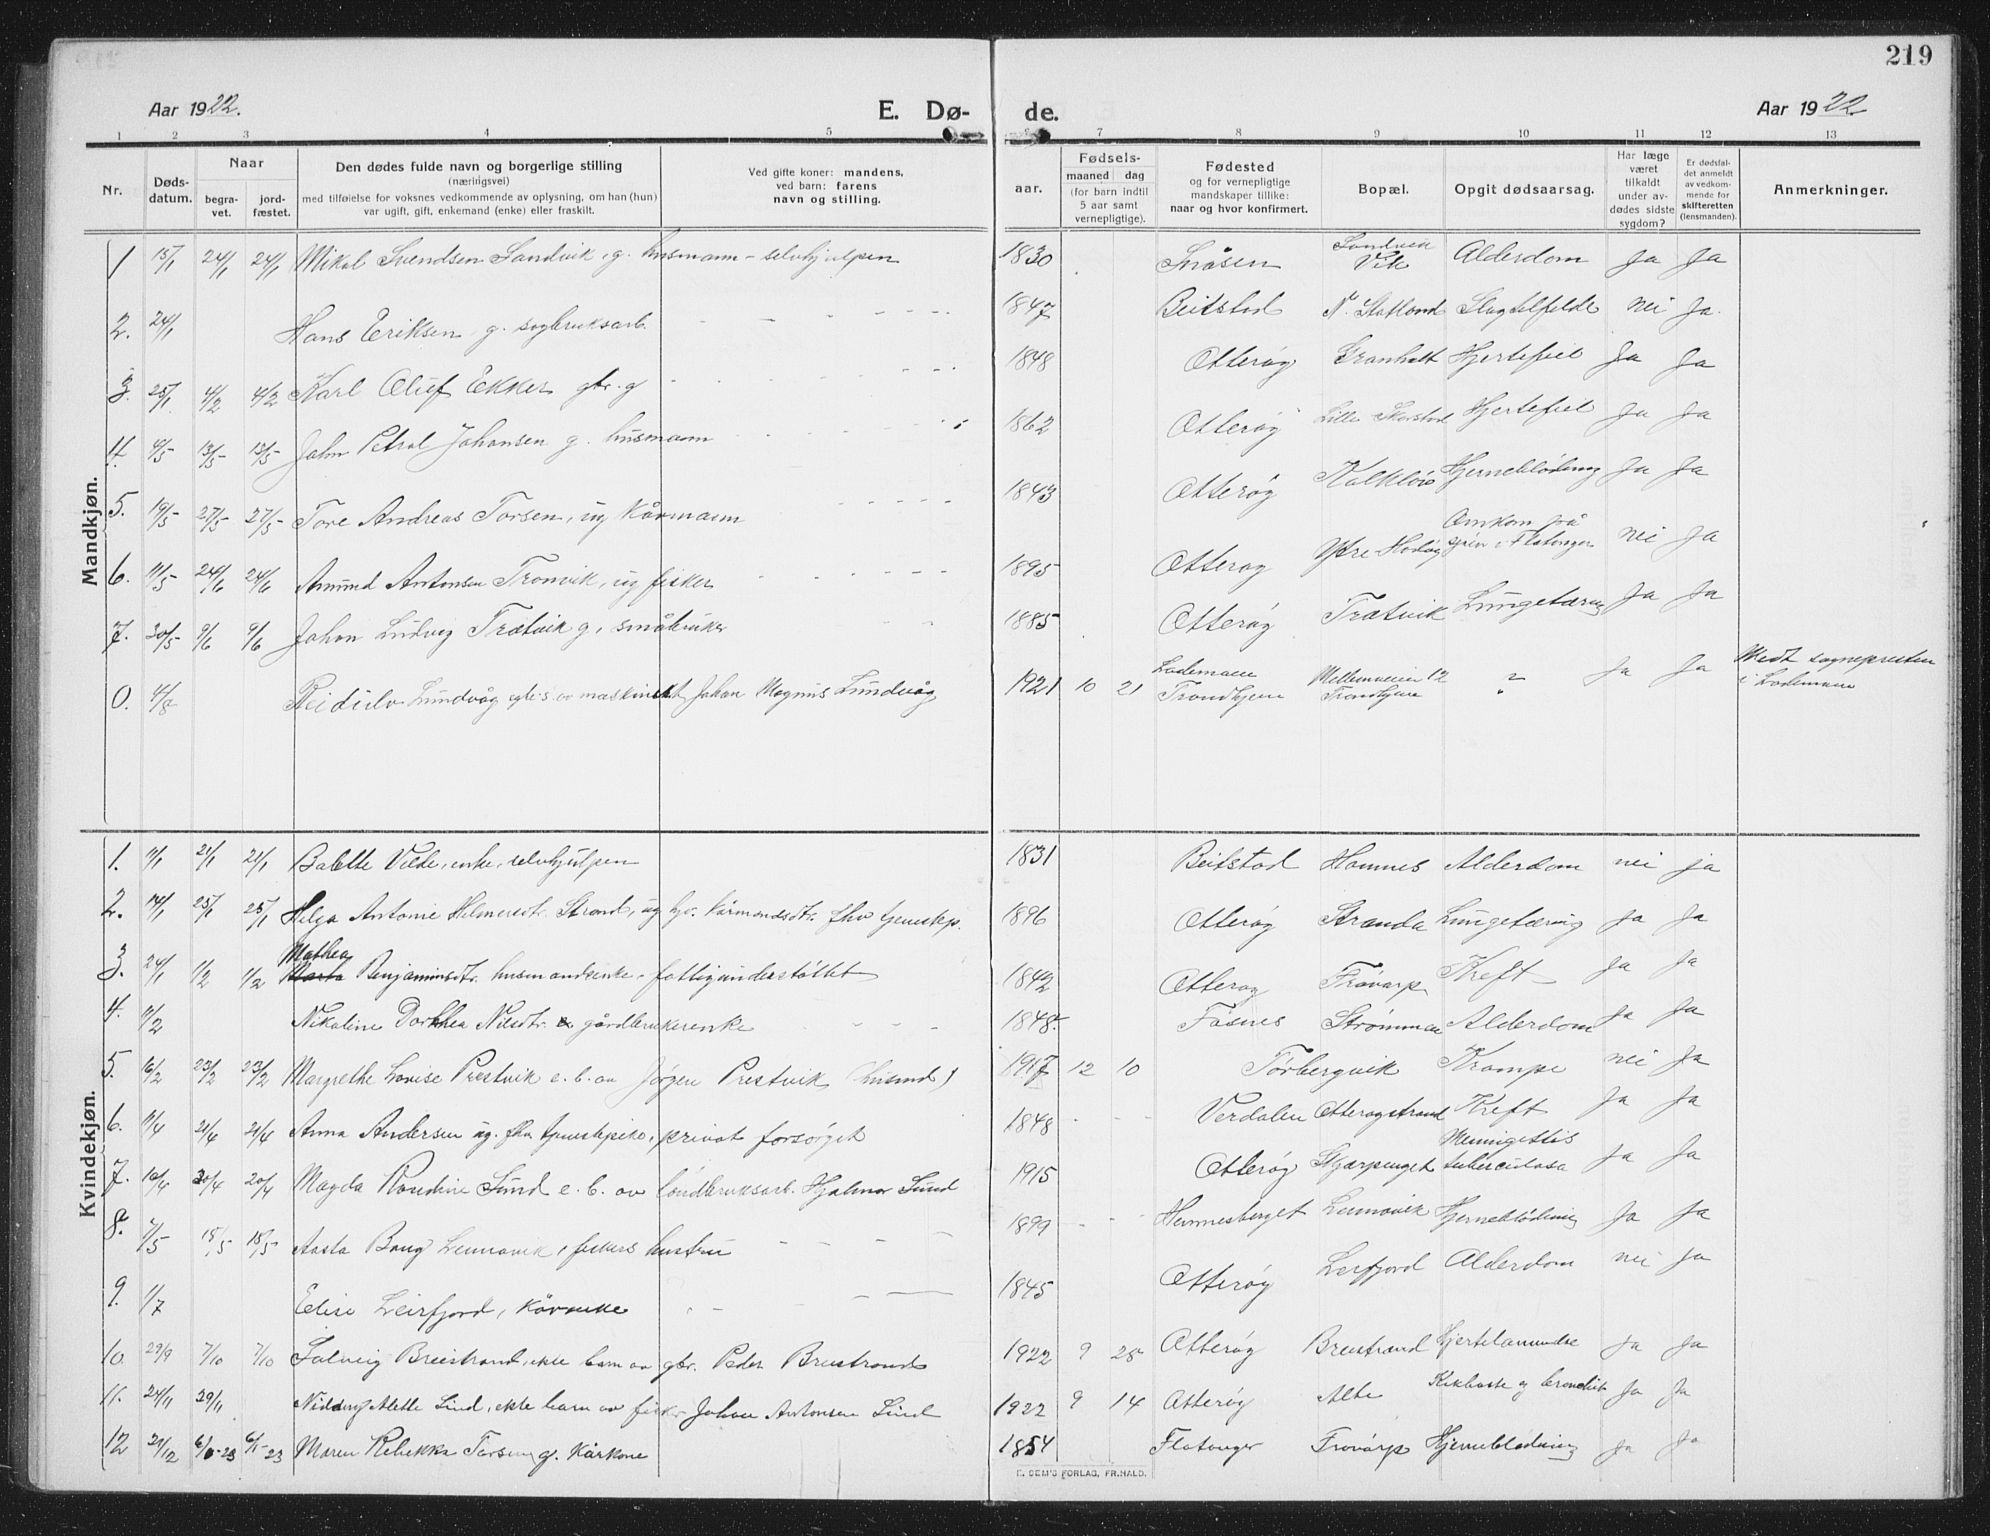 219
Aar 1922. E. Dø- de. Aar 1922
1 2 3 4 5 7 8 9 10 11 12 13
Nr.
Døds-
datum.
Naar
begra-
vet.
jord-
fæstet.
Den dødes fulde navn og borgerlige stilling
(næringsvei)
med tilføielse for voksnes vedkommende av oplysning, om han (hun)
var ugift, gift, enkemand (enke) eller fraskilt.
Ved gifte koner: mandens,
ved barn: farens
navn og stilling.
aar.
Fødsels-
maaned dag
(for barn indtil
5 aar samt
vernepligtige).
Fødested
og for vernepligtige
mandskaper tillike:
naar og hvor konfirmert.
Bopæl.
Opgit dødsaarsag.
Har læge
været
tilkaldt
under av-
dødes sidste
sygdom?
Er dødsfal-
det anmeldt
av vedkom-
mende for
skifteretten
(lensmanden).
Anmerkninger.
Mandkjøn.
1 15/1 24/1 24/1 Mikal Svendsen Sandvik, g. husmann - selvhjulpen 1830 Snåsen Sandvik Vik Alderdom Ja Ja
2. 24/1 Hans Eriksen g. sagbruksarb. 1847 Beitstad N. Statland Slagtilfelde nei Ja.
3. 25/1 4/2 4/2 Karl Oluf Ekker gbr. g 1848 Otterøy Granholt Hjertefeil Ja Ja
4. 4/5 13/5 13/5 John Petral Johansen g. husmann 1862 Otterøy Lille Skorstad Hjertefeil Ja Ja
5. 19/5 27/5 27/5 Tore Andreas Torsen, ug kårmann 1843 Otterøy Kalkløv Hjerneblødning Ja Ja
6. 11/5 24/6 24/6 Amund Antonsen Tromvik, ug fisker 1895 Otterøy Ytre Hodøy Omkom på sjøen i Flatanger nei Ja
7. 30/5 9/6 9/6 Johan Ludvig Trætvik g, småbruker 1885 Otterøy Trætvik Lungetæring Ja Ja
0. 4/8 Reidulv Lundvåg egte s. av maskinist Johan Magnus Lundvåg 1921 10 21 Lademoen Trondhjem Mellemveien 12 Trondhjem ? Ja Ja Medt sogneprestem i Lademoen
Kvindekjøn.
1. 11/1 21/1 21/1 Balette Vilde, enke, selvhjulpen 1831 Beitstad Hamnes Alderdom nei ja
2. 14/1 25/1 25/1 Helga Antonie Helmersdtr. Strand, ug hjv. kårmandsdtr. fhv tjenestep. 1896 Otterøy Stranda Lungetæring Ja Ja
3. 24/1 1/2 1/2 Mathea Benjaminsdtr. husmandsenke - fattigunderstøttet 1842 Otterøy Frøvarp Kreft Ja Ja
4. 11/2 Nikoline Dorthea Nilsdtr. gårdbrukerenke 1848. Fosnes Strømmen Alderdom Ja Ja
5. 16/2 23/2 23/2 Margrethe Lovise Prestvik e. b. av Jørgen Prestvik (husmd) 1917 12 10 Torbergvik Krampe nei Ja
6. 11/4 21/4 21/4 Anna Andersen ug. fhv tjenestepike, privat forsørget 1848 Verdalen Otterøystrand Kreft Ja Ja
7. 10/4 20/4 20/4 Magda Raudine Sund e. b. av landbruksarb. Hjalmar Sund 1915 Otterøy Skjærpunget Meningitis tuberculosa Ja Ja
8. 7/5 18/5 18/5 Aasta Boug Leinavik, fiskers hustru 1899 Hemnesberget Leinavik Hjerneblødning Ja Ja
9. 1/7 Elise Leirfjord, kårenke 1845 Otterøy Leirfjord Alderdom nei Ja
10. 29/9 7/10 7/10 Solveig Breistrand, ekte barn av gbr. Peder Breistrand 1922 9 25 Otterøy Breistrand Hjertelammelse Ja Ja
11. 24/11 29/11 Alette Sund, ekte barn av fisker Johan Antonsen Sund 1922 9 14 Otterøy Alte Kikhoste og bronchit Ja Ja
12 29/12 6/1-23 6/1-23 Maren Rebekka Torsen g. kårkone 1854 Flatanger Frøvarp Hjerneblødning Ja Ja
E. SEM'S FORLAG, FR.HALD.